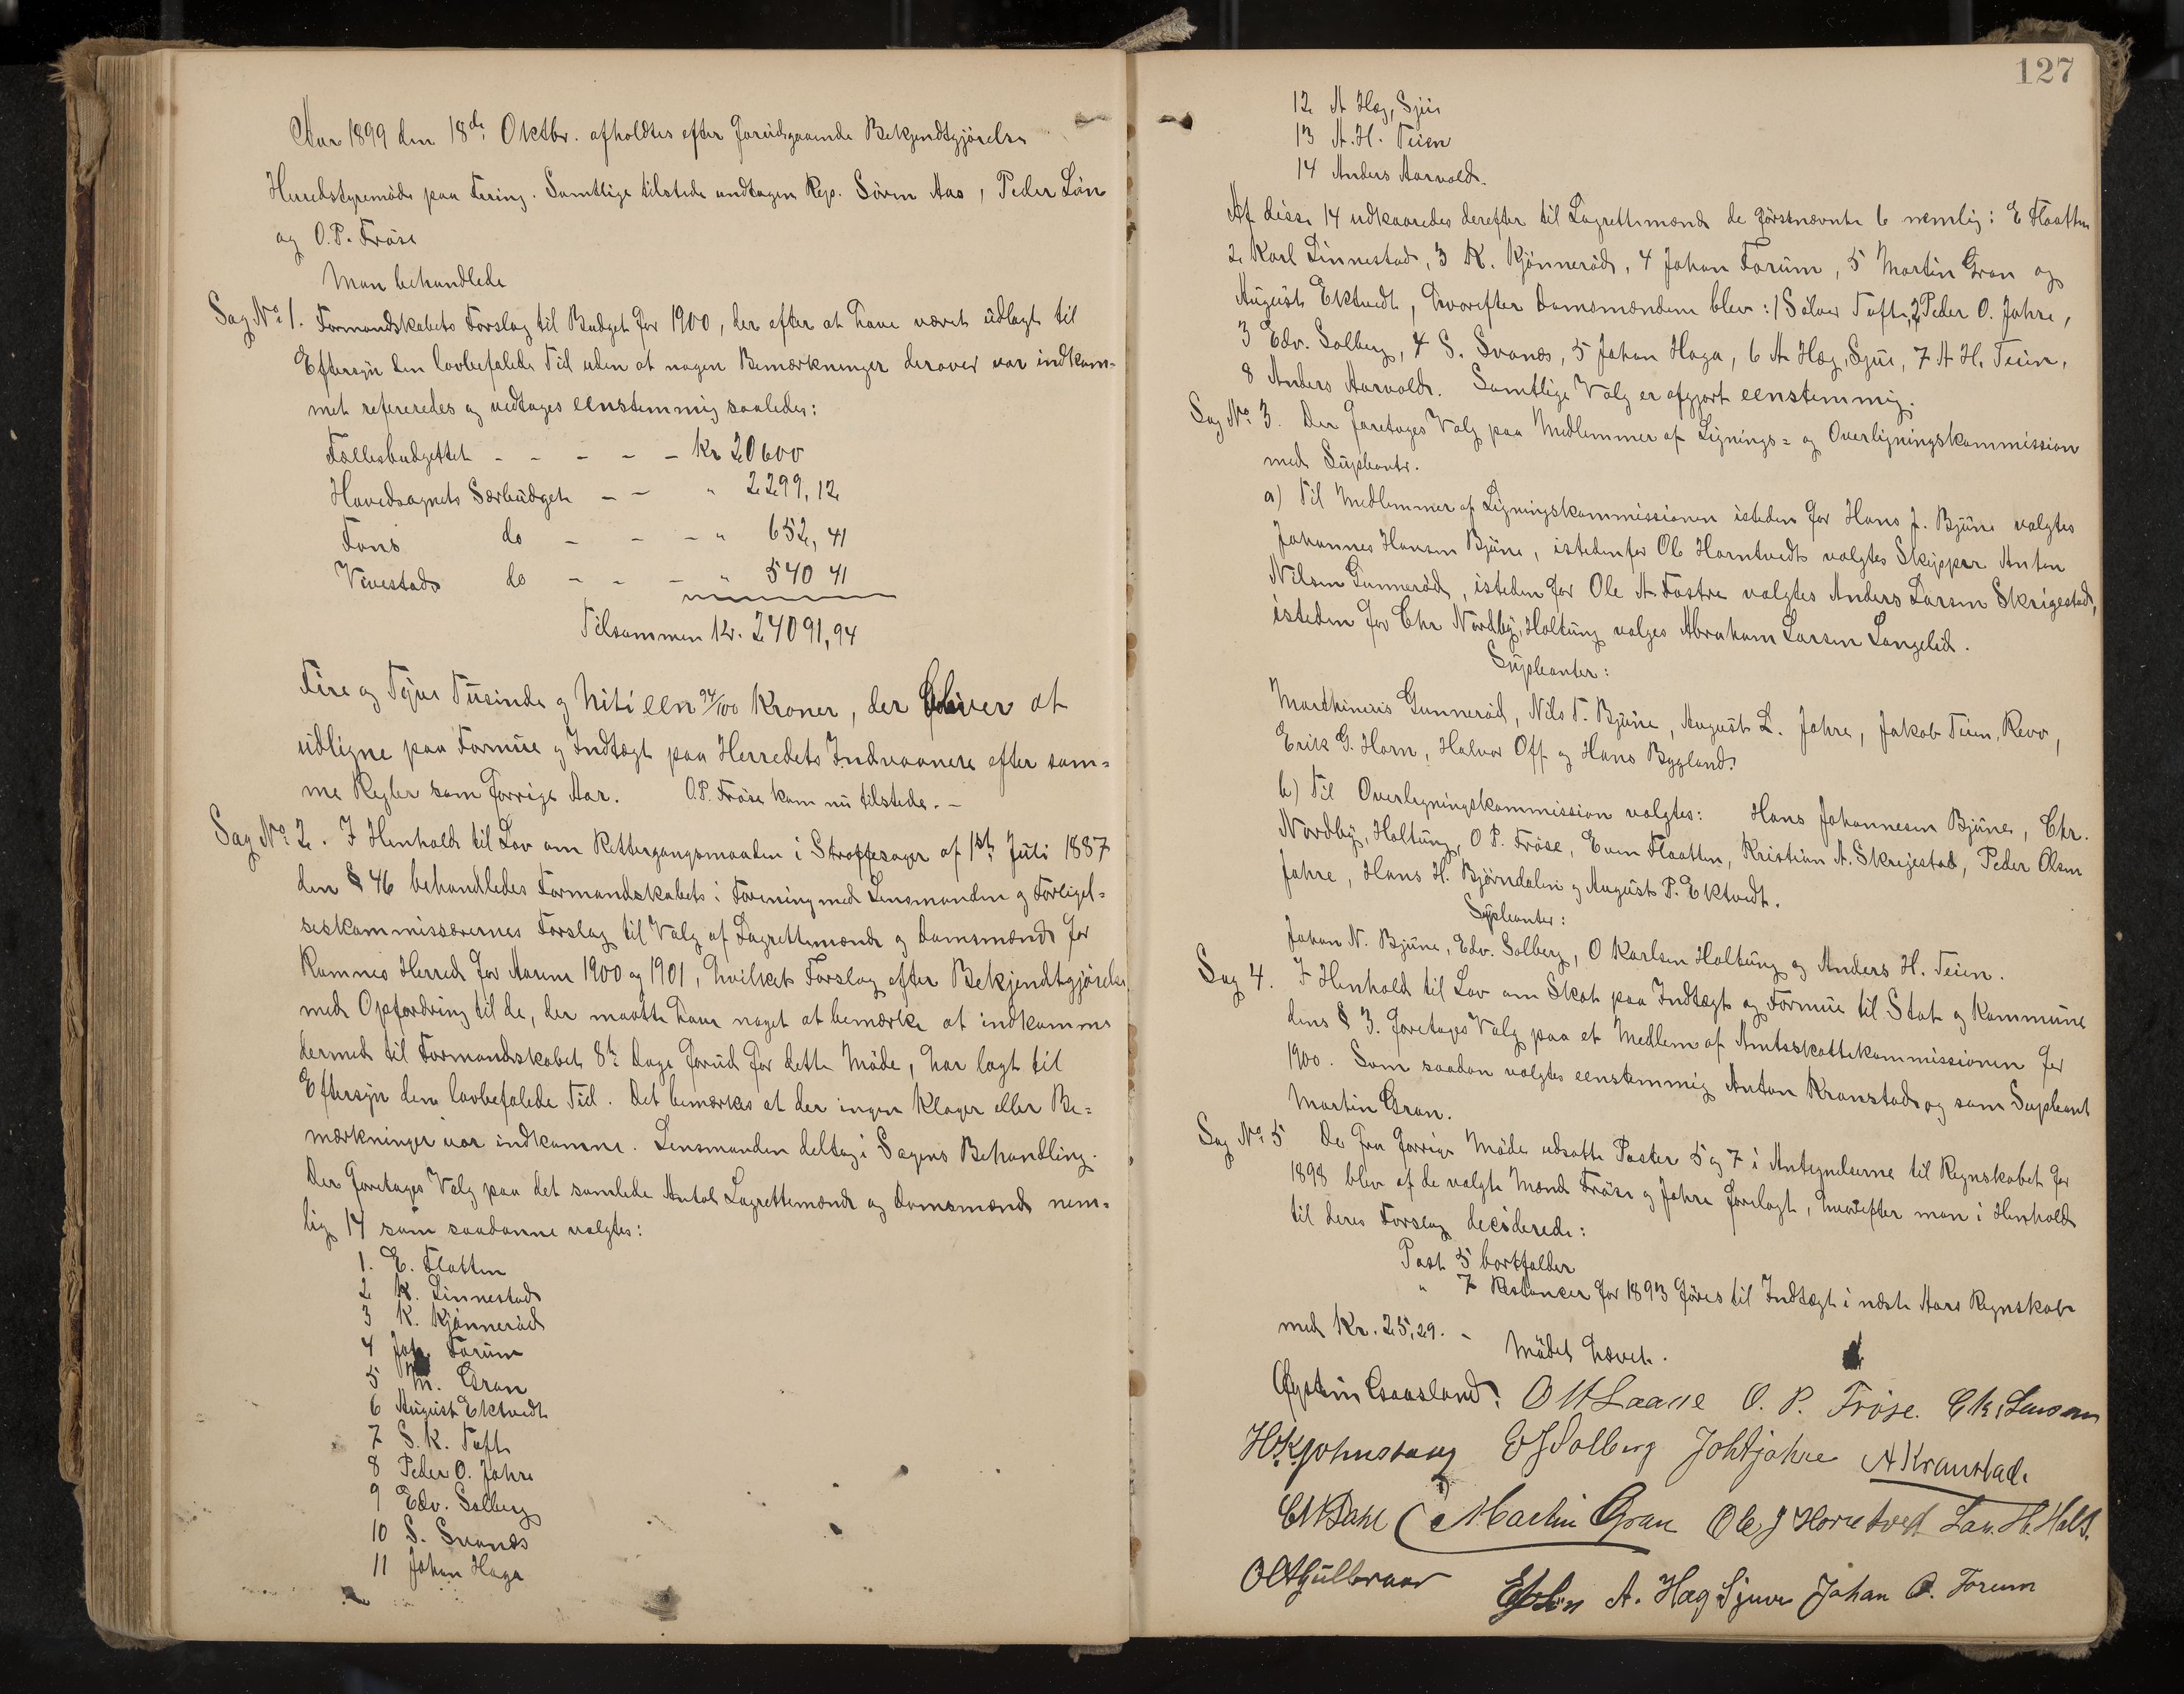 Aar 1899 den 18de Oktbr. afholdtes efter forudgaaende Bekjendtgjörelse
Herredstyremöde paa Fering. Samtlige tilstede undtagen Rep. Sören Aas, Peder Lön
og O.P. Fröse
Man behandlede
Sag No 1. Formandskabets Forslag til Budget for 1900, der efter at have været udlagt til
Eftersyn den lovbefalede Tid uden at nogen Bemærkninger derover var indkom-
met refereredes og vedtoges eenstemmig saaledes:
Fællesbudgettet - - - - - Kr 20600
Hovedsognets Særbudget - - " 2299,12
Fons do - - - " 652,41
Vivestad do - - - " 540 41
Tilsammen Kr. 24091,94
Fire og Tyve Tusinde og Nitieen 94/100 Kroner, der bliver at
udligne paa Formue og Indtægt paa Herredets Indvaanere efter sam-
me Regler som forrige Aar. O.P. Fröse kom nu tilstede. -
Sag No 2. I Henhold til Lov om Rettergangsmaaden i Straffesager af 1st Juli 1887
den § 46 behandledes Formandskabets i Forening med Lensmanden og Forligel-
seskommissærernes Forslag til Valg af Lagrettemænd og Domsmænd for
Ramnes Herred for Aarene 1900 og 1901, hvilket Forslag efter Bekjendtgjörelse
med Opfordring til de, der maatte have noget at bemærke at indkomme
dermed til Formandskabet 8te Dage forud for dette Möde, har lagt til
Eftersyn den lovbefalede Tid. Det bemærkes at der ingen Klager eller Be-
mærkninger var indkomne. Lensmanden deltog i Sagens Behandling.
Der foretoges Valg paa det samlede Antal Lagrettemænd og Domsmænd nem-
lig 14 som saadanne valgtes:
1. E. Flatten
2 K. Linnestad
3 K. Kjönneröd
4 Joh. Forum
5 M. Gran
6 August Ektvedt
7 S.K. Tuft
8 Peder O. Jahre
9 Edv. Solberg
10 S. Svanæs
11 Johan Haga
127
12 A Hæg, Sjue
13 A.H. Teien
14 Anders Aarvold.
Af disse 14 udkaaredes derefter til Lagrettemænd de förstnævnte 6 nemlig: E Flaatten
2 Karl Linnestad, 3 K. Kjönneröd, 4 Johan Forum, 5 Martin Gran og
August Ektvedt, hvorefter Domsmændene blev: 1 Sölver Tuft, 2 Peder O. Jahre,
3 Edv. Solberg, 4 S. Svanæs, 5 Johan Haga, 6 A Hæg, Sjue, 7 A H. Teien,
8 Anders Aarvold. Samtlige Valg er afgjort eenstemmig.
Sag No 3. Der foretoges Valg paa Medlemmer af Lignings- og Overligningskommission
med Supleanter.
a) Til Medlemmer af Ligningskommissionen isteden for Hans J. Bjune valgtes
Johannes Hansen Bjune, istedenfor Ole Horntvedt valgtes Skipper Anton
Nilsen Gunneröd, isteden for Ole A. Fostve valgtes Anders Larsen Skrigestad,
isteden for Chr Nordby, Holtung valges Abraham Larsen Langelid.
Supleanter:
Marthinius Gunneröd, Nils T. Bjune, August L. Jahre, Jakob Teien, Revo,
Erik G. Horn, Halvor Off og Hans Bygland.
b) Til Overligningskommission valgtes: Hans Johannesen Bjune, Chr.
Nordby, Holtung, O P. Fröse, Even Flaatten, Kristian A. Skrejestad, Peder Olsen
Jahre, Hans H. Björndalen og August P. Ektvedt.
Supleanter:
Johan N. Bjune, Edv. Solberg, O Karlsen Holtung og Anders H. Teien.
Sag 4. I Henhold til Lov om Skat paa Indtægt og Formue til Stat og Kommune
dens § 3. foretoges Valg paa et Medlem af Amtsskattekommissionen for
1900. Som saadan valgtes eenstemmig Anton Kranstad og som Supleant
Martin Gran.
Sag No 5 De fra forrige Möde udsatte Poster 5 og 7 i Antegnelserne til Regnskabet for
1898 blev af de valgte Mænd Fröse og Jahre forelagt, hvorefter man i Henhold
til deres Forslag deciderede:
Post 5 bortfalder
" 7 Restancer for 1893 föres til Indtægt i næste Aars Regnskab
med Kr. 25,29. -
Mödet hævet.
Øystein Graasland. O. P. Fröse.
E J Solberg A Kranstad.
Martin Gran Ole J Horntvedt
A. Hæg Sjue Johan O. Forum